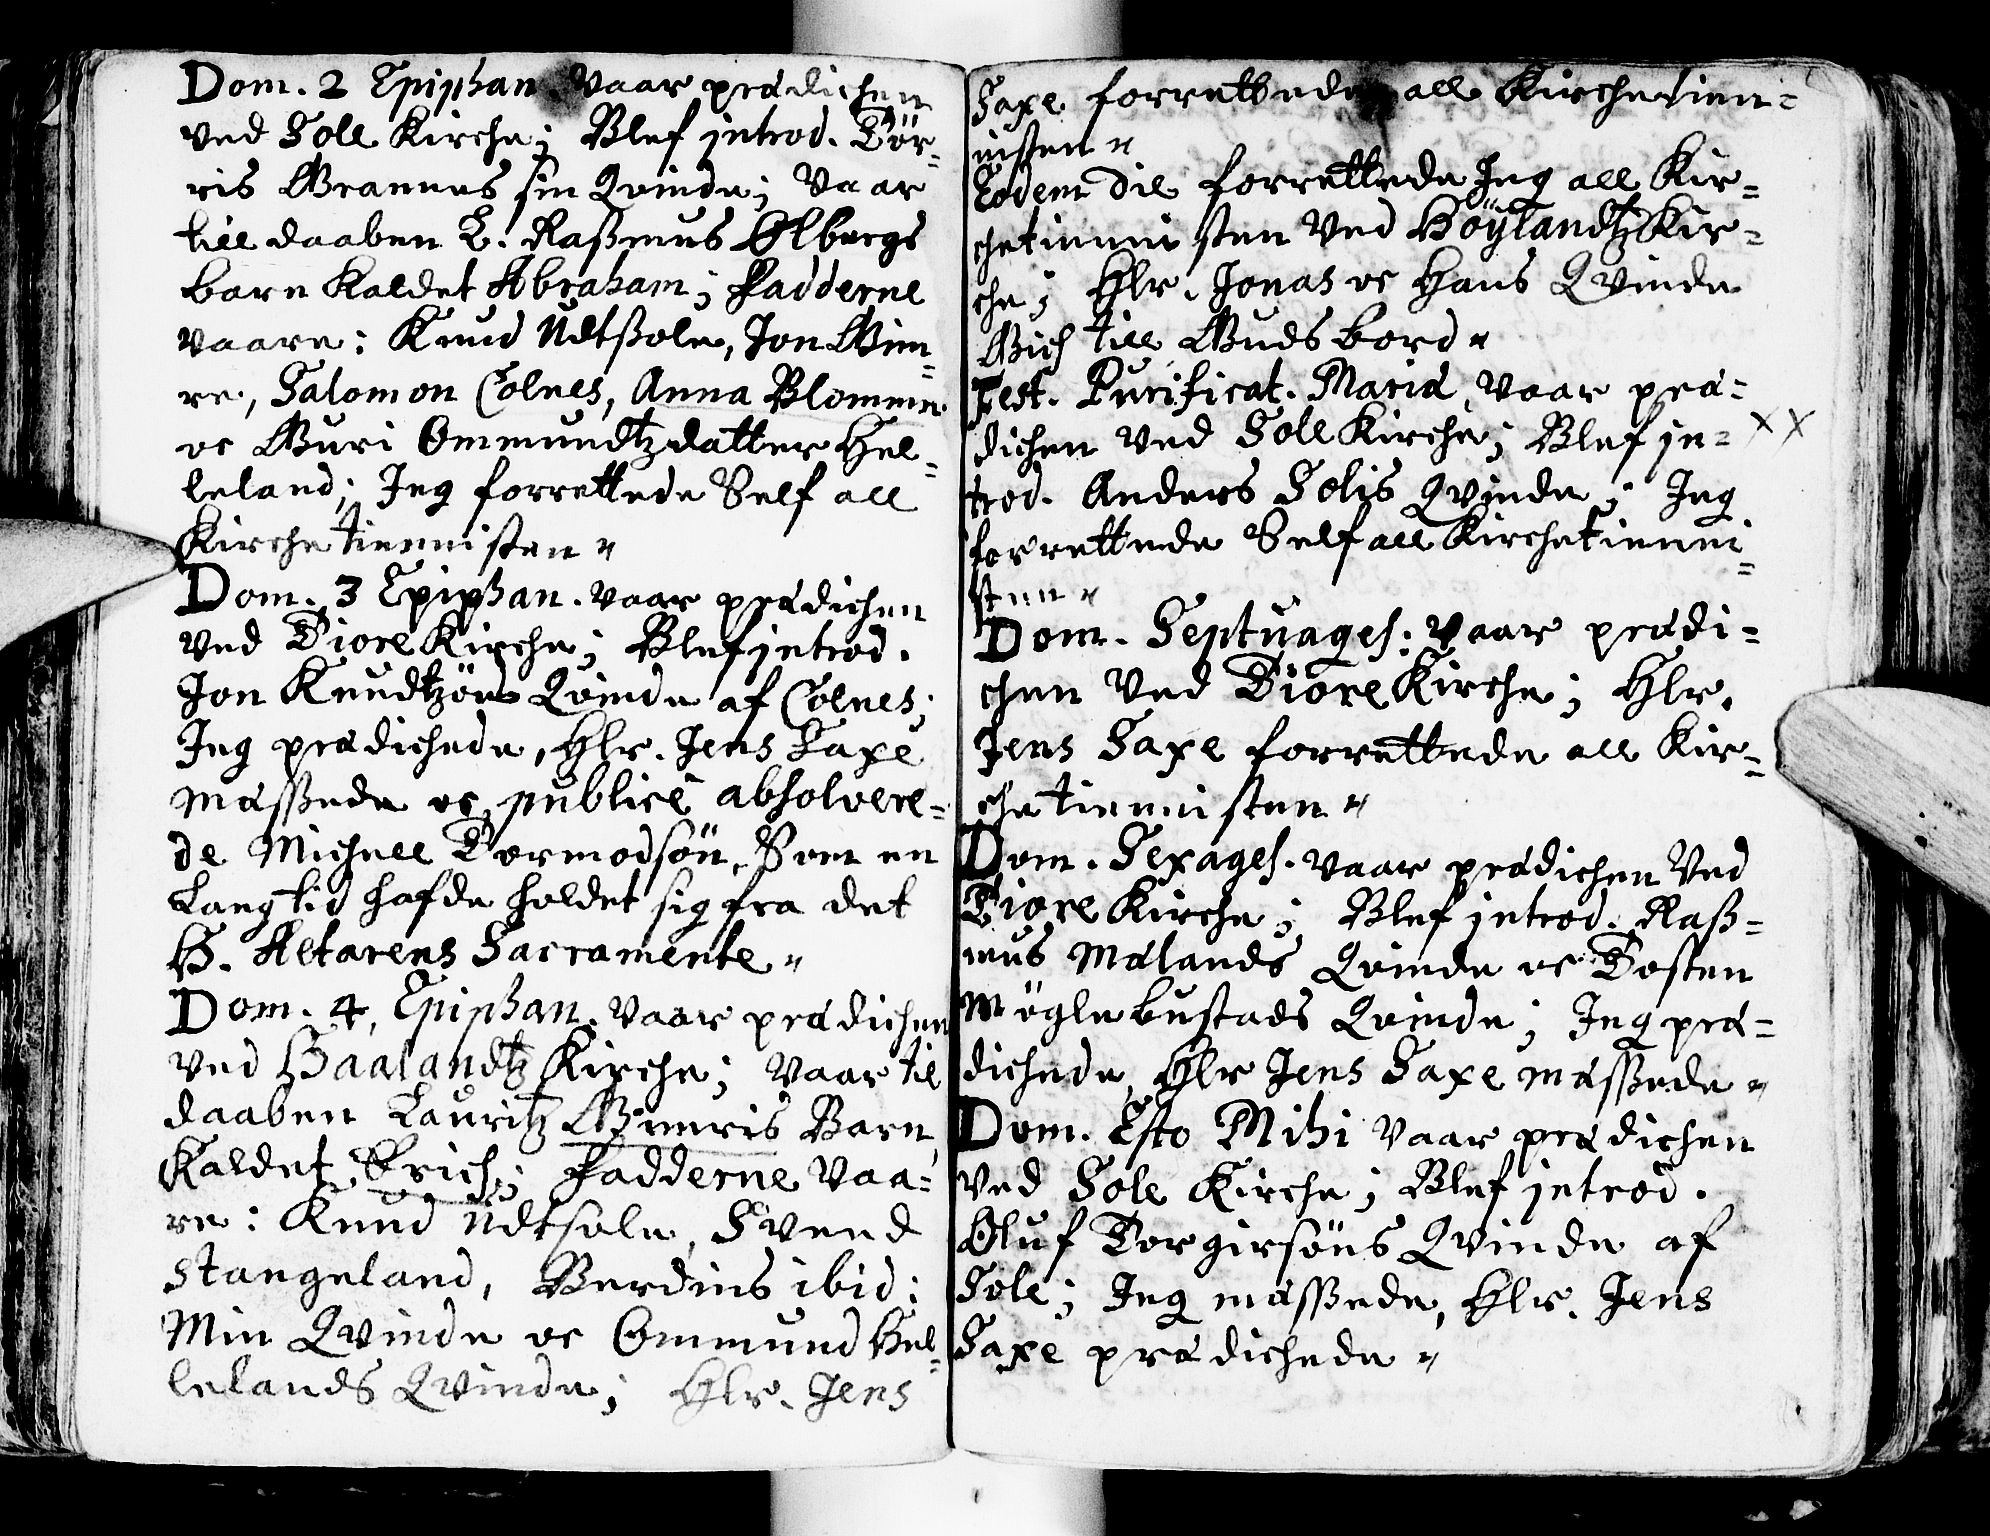 Dom. 2 Epiphan. Vaar prædichen
ved Sole Kirche; Blef introd. Tör-
ris Grannes sin Qvinde; Vaar
till daaben L. Raßmus Ølbergs
barn kaldet Abraham; Fadderne
vaare: Knud Udtßole, Jon Gim-
re, Salomon Colnes, Anna Blomme
oc Guri Ommundtzdatter Hel-
leland; Jeg forrettede Self all
Kirchetiennisten"
Dom. 3 Epiphan. vaar prædichen
ved Tiore Kirche; Blef introd.
Jon Knudtzöns Qvinde af Colnes;
Jeg prædichede, Hlr. Jens Saxe
mæßede oc publicè absolvere-
de Michell Tormodsön, Som en
Lang tid hafde holdet sig fra det
H. Altarens Sacramente"
Dom. 4, Epiphan. vaar prædichen
ved Haalandtz Kirche; Vaar til
daaben Lauritz Gimris Barn,
Kaldet Erich; Fadderne Vaa-
re: Knud Udtsole, Svend
Stangeland, Berdines ibid:
Min Qvinde oc Ommund Hel-
lelands Qvinde; Hlr. Jens
Saxe forrettede all Kirchetien-
nisten"
Eodem die forrettede Jeg all Kir-
chetiennisten Ved Höÿlandtz Kir-
che; Hlr. Jonas oc Hans Qvinde
Gich till Guds bord"
Fest. Purificat. Mariæ, vaar præ-
dichen ved Sole Kirche; Blef in- XX
trod. Anders Solis Qvinde; Jeg
forrettede Self all Kirchetienni-
sten"
Dom. Septuages: vaar prædi-
chen Ved Tiore Kirche; Hlr.
Jens Saxe forrettede all Kir-
chetiennisten"
Dom. Sexages. vaar prædichen Ved
Tiore Kirche; Blef introd. Raß-
mus Mælands Qvinde oc Tosten
Möglebustads Qvinde; Jeg præ-
dichede, Hlr Jens Saxe mæßede"
Dom. Esto Mihi Vaar prædichen
ved Sole Kirche; Blef introd.
Oluf Torgirsöns Qvinde af
Sole; Jeg mæßede, Hlr. Jens
Saxe prædichede"